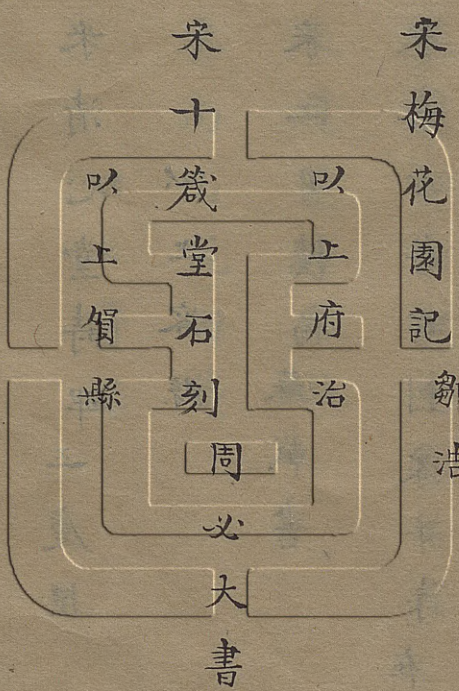 宋梅花園記 鄒浩
以上府治
宋十箴堂石刻 周必大書
以上賀縣